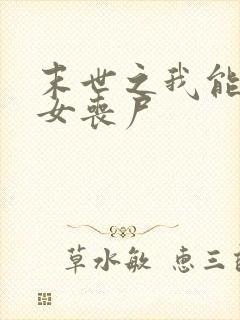 末世之我能
女丧尸
草水敏 惠三